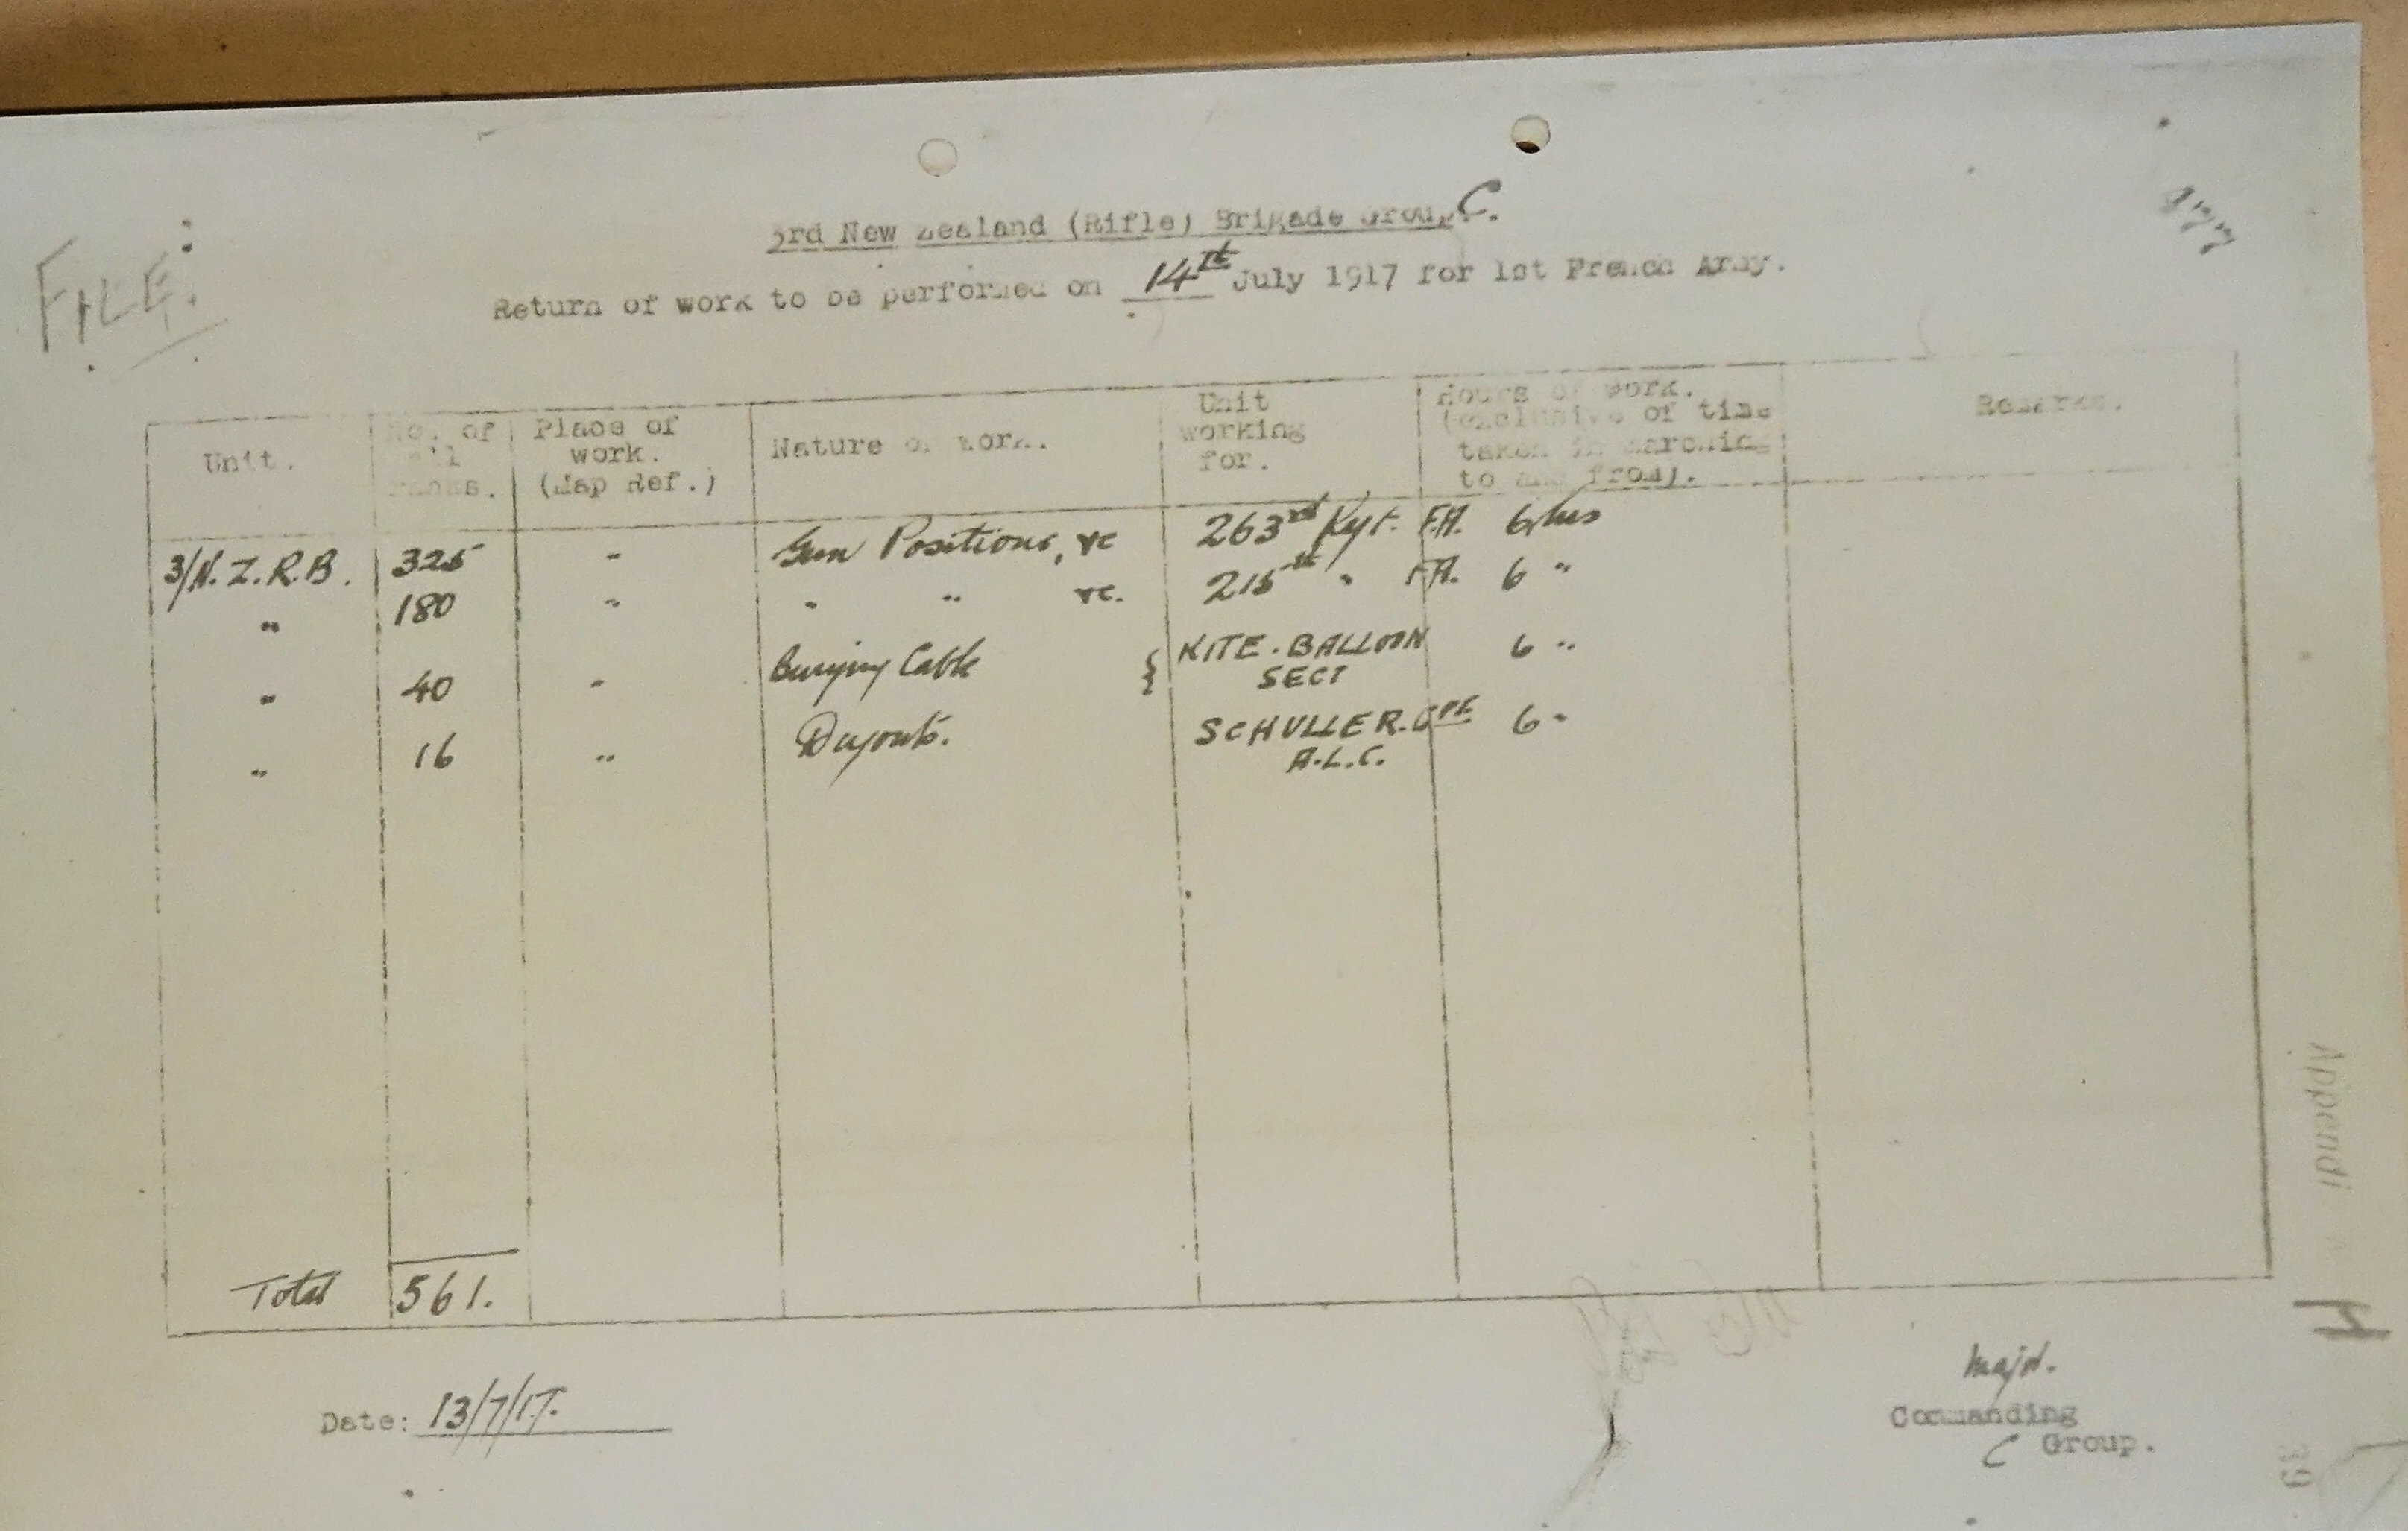 FILE:
3rd New Zealand (Rifle) Brigade Group C.
Return of work to be performed on 14th July 1917 for 1st French Army.
Unit.
No. of
all
ranks.
Place of
work.
(Map Ref.)
Nature of work.
Unit
working
for.
Hours of work.
(exclusive of time
taken in marching
to and from).
Remarks.
3/N.Z.R.B. 325 - Gun Positions, &c 263rd F.A. 6 hrs
" 180 " " " &c. 215th " F.A. 6 "
" 40 " Burying Cable { KITE. BALLOON 6 "
SECT
" 16 " Dugouts. SCHULLER. 6 "
A.L.C.
Total 561.
Date: 13/7/17.
Major.
Commanding
C Group.
Appendi
H
39